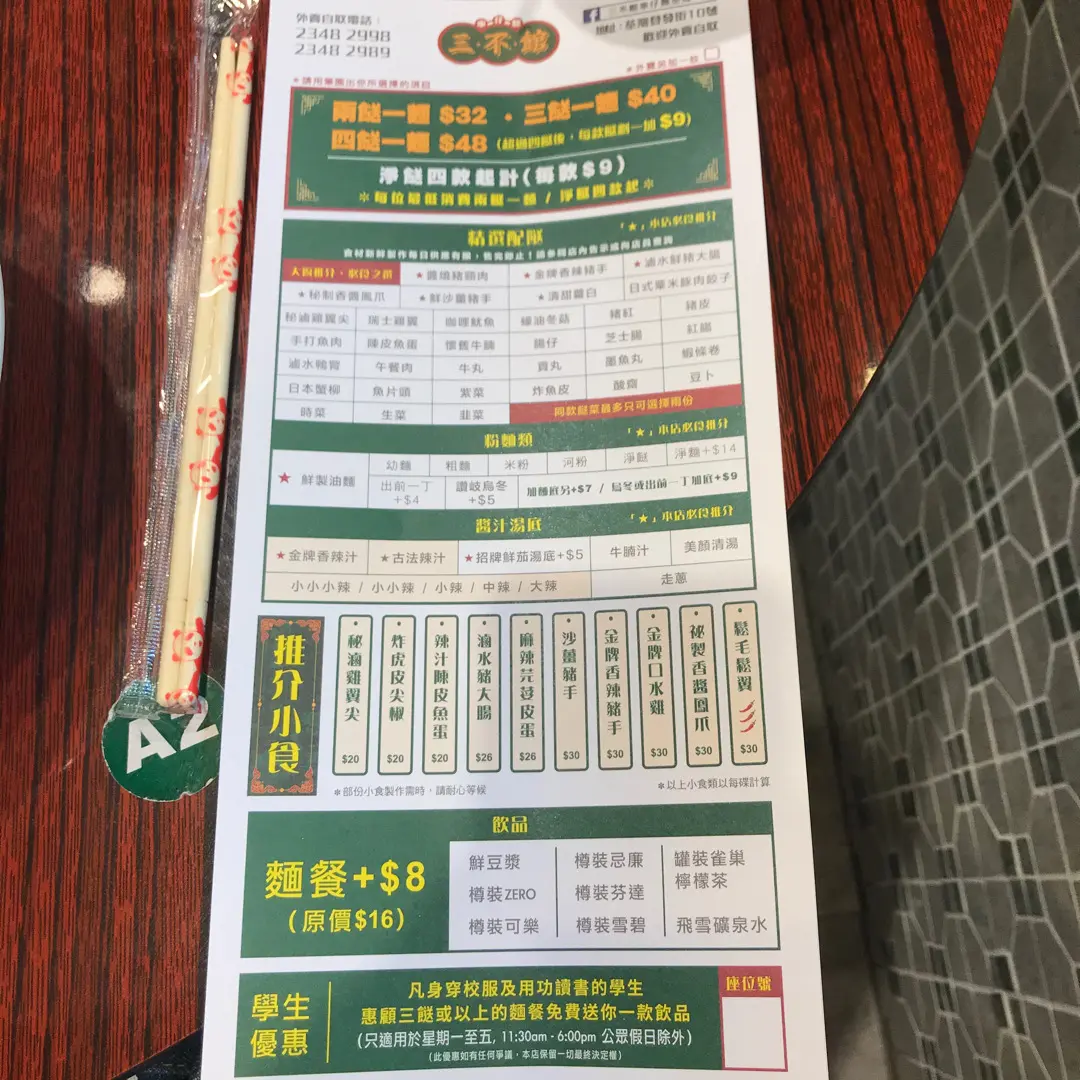 外賣自取電話：
2348 2998
2348 2989
車仔麵
三不館
地址：荃灣登發街10號
歡迎外賣自取
＊外賣另加一蚊
＊請用筆圈出你所選擇的項目
兩餸一麵 $32 · 三餸一麵 $40
四餸一麵 $48 (超過四餸後，每款餸劃一加 $9)
淨餸四款起計(每款$9)
＊每位最低消費兩餸一麵 / 淨餸四款起＊
精選配餸 「★」本店必食推介
食材新鮮製作每日供應有限，售完即止！請參閱店內告示或向店員查詢
人氣推介·必食之選 ★醬燒豬頸肉 ★金牌香辣豬手 ★滷水鮮豬大腸
★秘制香醬鳳爪 ★鮮沙薑豬手 ★清甜蘿白 日式粟米豚肉餃子
秘滷雞翼尖 瑞士雞翼 咖喱魷魚 蠔油冬菇 豬紅 豬皮
手打魚肉 陳皮魚蛋 懷舊牛腩 腸仔 芝士腸 紅腸
滷水鴨腎 午餐肉 牛丸 貢丸 墨魚丸 蝦條卷
日本蟹柳 魚片頭 紫菜 炸魚皮 酸齋 豆卜
時菜 生菜 韭菜 同款餸菜最多只可選擇兩份
粉麵類 「★」本店必食推介
★ 鮮製油麵 幼麵 粗麵 米粉 河粉 淨餸 淨麵+$14
出前一丁+$4 讚岐烏冬+$5 加麵底另+$7 / 烏冬或出前一丁加底+$9
醬汁湯底 「★」本店必食推介
★金牌香辣汁 ★古法辣汁 ★招牌鮮茄湯底+$5 牛腩汁 美顏清湯
小小小辣 / 小小辣 / 小辣 / 中辣 / 大辣 走蔥
推介小食
秘滷雞翼尖 $20
炸虎皮尖椒 $20
辣汁陳皮魚蛋 $20
滷水豬大腸 $26
麻辣芫荽皮蛋 $26
沙薑豬手 $30
金牌香辣豬手 $30
金牌口水雞 $30
祕製香醬鳳爪 $30
鬆毛鬆翼 $30
＊部份小食製作需時，請耐心等候
＊以上小食類以每碟計算
飲品
麵餐+$8
(原價$16)
鮮豆漿 樽裝忌廉 罐裝雀巢檸檬茶
樽裝ZERO 樽裝芬達
樽裝可樂 樽裝雪碧 飛雪礦泉水
學生優惠
凡身穿校服及用功讀書的學生
惠顧三餸或以上的麵餐免費送你一款飲品
(只適用於星期一至五, 11:30am - 6:00pm 公眾假日除外)
(此優惠如有任何爭議，本店保留一切最終決定權)
座位號
A2